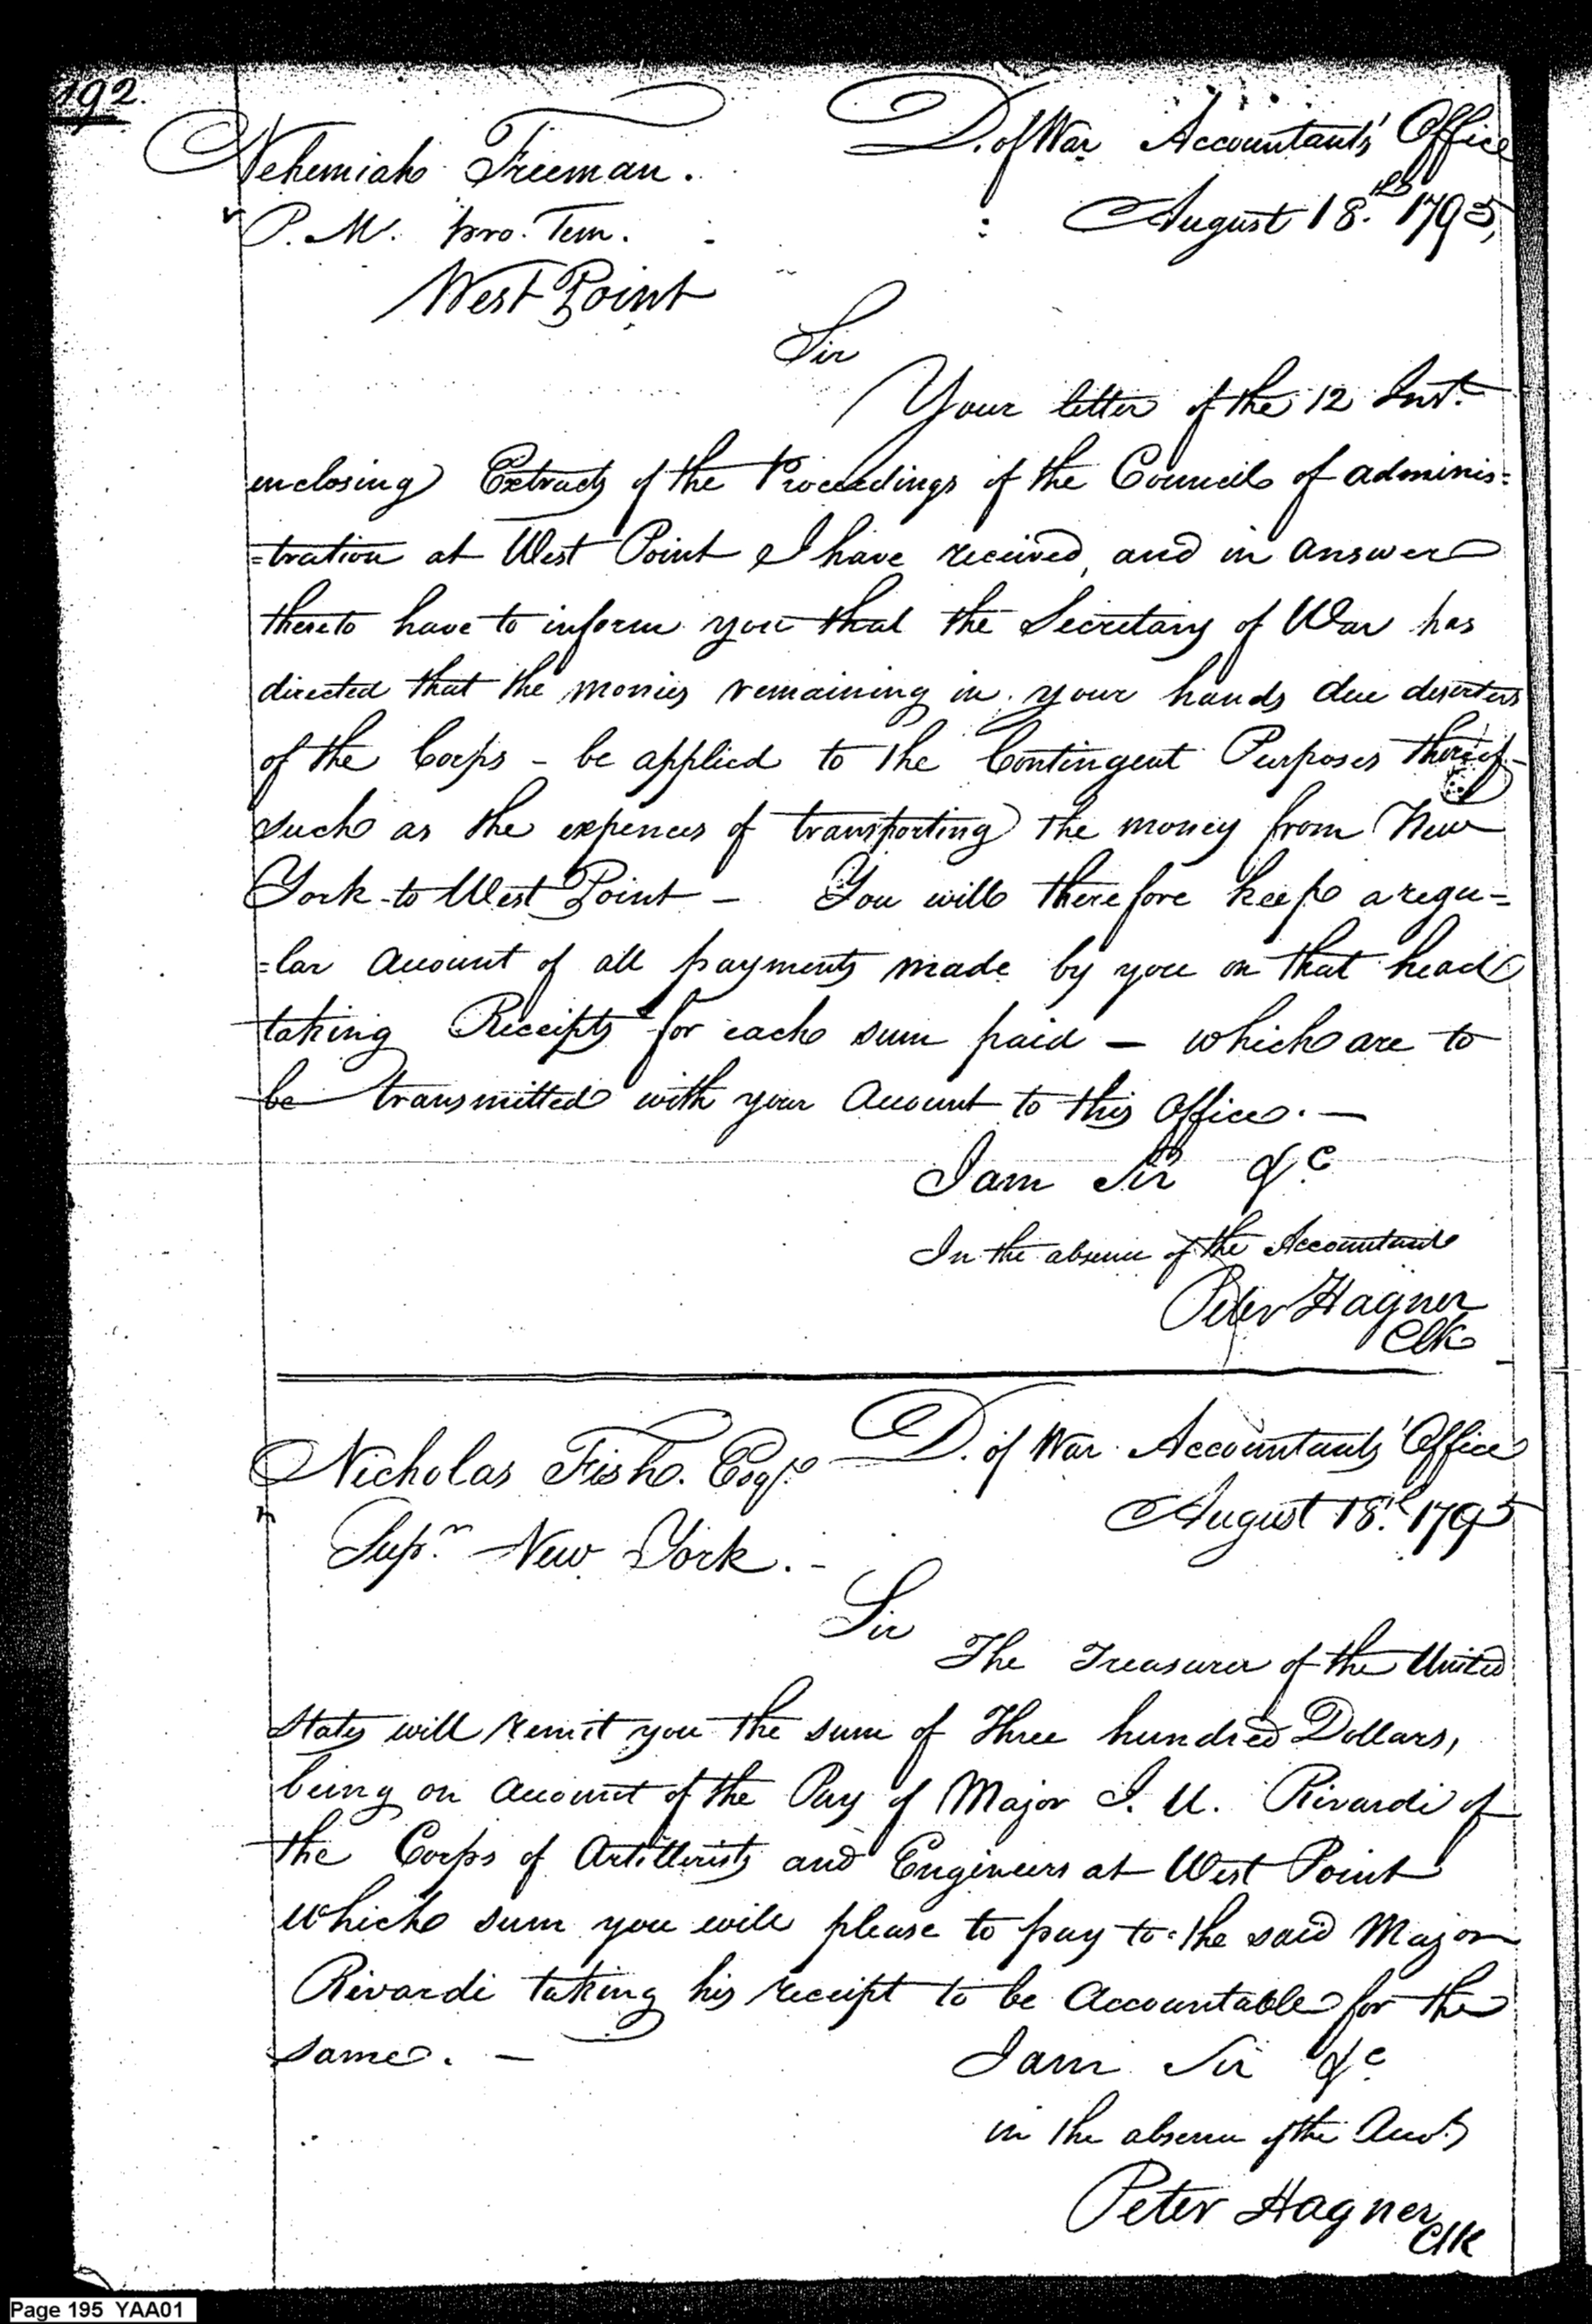 192.
Nehemiah Freeman.
P. M. pro. Tem.
West Point
D. of War Accountant's Office
August 18.th 1795,
Sir
Your letter of the 12 Inst.
enclosing Extracts of the Proceedings of the Council of adminis-
=tration at West Point I have received, and in answer
thereto have to inform you that the Secretary of War has
directed that the monies remaining in your hands due deserters
of the Corps - be applied to the Contingent Purposes thereof -
such as the expences of transporting the money from New
York to West Point - You will therefore keep a regu-
=lar account of all payments made by you on that head
taking Receipts for each sum paid - which are to
be transmitted with your Account to this Office. -
I am Sir &c
In the absence of the Accountant
Peter Hagner
Clk
Nicholas Fish. Esqr.
Supr. New York. -
D. of War Accountants' Office
August 18.th 1795
Sir
The Treasurer of the United
States will remit you the sum of Three hundred Dollars,
being on account of the Pay of Major I. U. Rivardi of
the Corps of Artillerists and Engineers at West Point
which sum you will please to pay to the said Major
Rivardi taking his receipt to be Accountable for the
same. -
I am Sir &c
in the absence of the Acct.
Peter Hagner
Clk
Page 195 YAA01